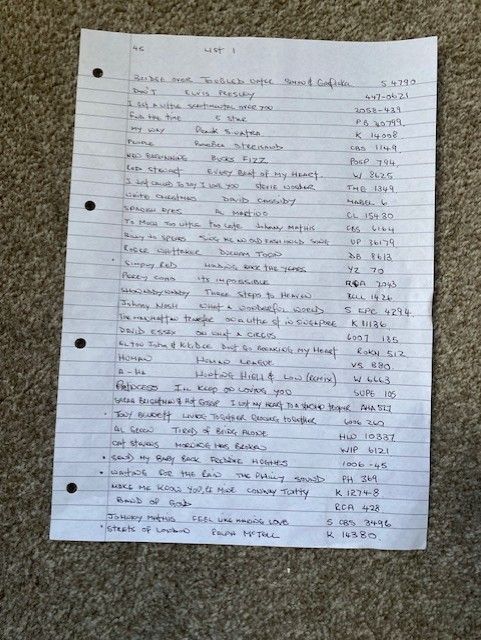 45 LIST 1
BRIDGE OVER TROUBLED WATER SIMON & Garfunkel S 4790
DON'T ELVIS PRESLEY 447-0621
I GET A LITTLE SENTIMENTAL OVER YOU 2058-439
FIND THE TIME 5 STAR PB 40799
MY WAY FRANK SINATRA K 14008
PEOPLE BARBRA STREISAND CBS 1149
NEW BEGINNING BUCKS FIZZ POSP 794
ROD STEWART EVERY BEAT OF MY HEART. W 8625
I JUST CALLED TO SAY I LOVE YOU STEVIE WONDER TMG 1349
WHITE CHRISTMAS DAVID CASSIDY MABEL 6
SPANISH EYES AL MARTINO CL 15430
TO MUCH TOO LITTLE TOO LATE JOHNNY MATHIS CBS 6164
BILLY JO SPEARS SING ME AN OLD FASHIONED SONG UP 36179
ROGER WHITTAKER DURHAM TOWN DB 8613
SIMPLY RED HOLDING BACK THE YEARS YZ 70
PERRY COMO ITS IMPOSSIBLE RCA 2043
SHOWADDYWADDY THREE STEPS TO HEAVEN BELL 1426
JOHNNY NASH WHAT A WONDERFUL WORLD S EPC 4294
THE MANHATTAN TRANSFER ON A LITTLE ST IN SINGAPORE K 11136
DAVID ESSEX OH WHAT A CIRCUS 6007 185
ELTON JOHN & KIKI DEE DONT GO BREAKING MY HEART ROKN 512
HUMAN HUMAN LEAGUE VS 880
A-HA HUNTING HIGH & LOW (REMIX) W 6663
PRINCESS I'LL KEEP ON LOVING YOU SUPE 105
SARAH BRIGHTMAN & HOT GOSSIP I LOST MY HEART TO A STARSHIP TROOPER AHA 527
TONY BENNETT LIVING TOGETHER GROWING TOGETHER 6006 260
AL GREEN TIRED OF BEING ALONE HLU 10337
CAT STEVENS MORNING HAS BROKEN WIP 6121
SEND MY BABY BACK FREDDIE HUGHES 1006-45
WAITING FOR THE RAIN THE PHILLY SOUND PH 369
MAKE ME KNOW YOU'RE MINE CONWAY TWITTY K 12748
BAND OF GOLD RCA 428
JOHNNY MATHIS FEEL LIKE MAKING LOVE S CBS 3496
STREETS OF LONDON RALPH McTELL K 14380.